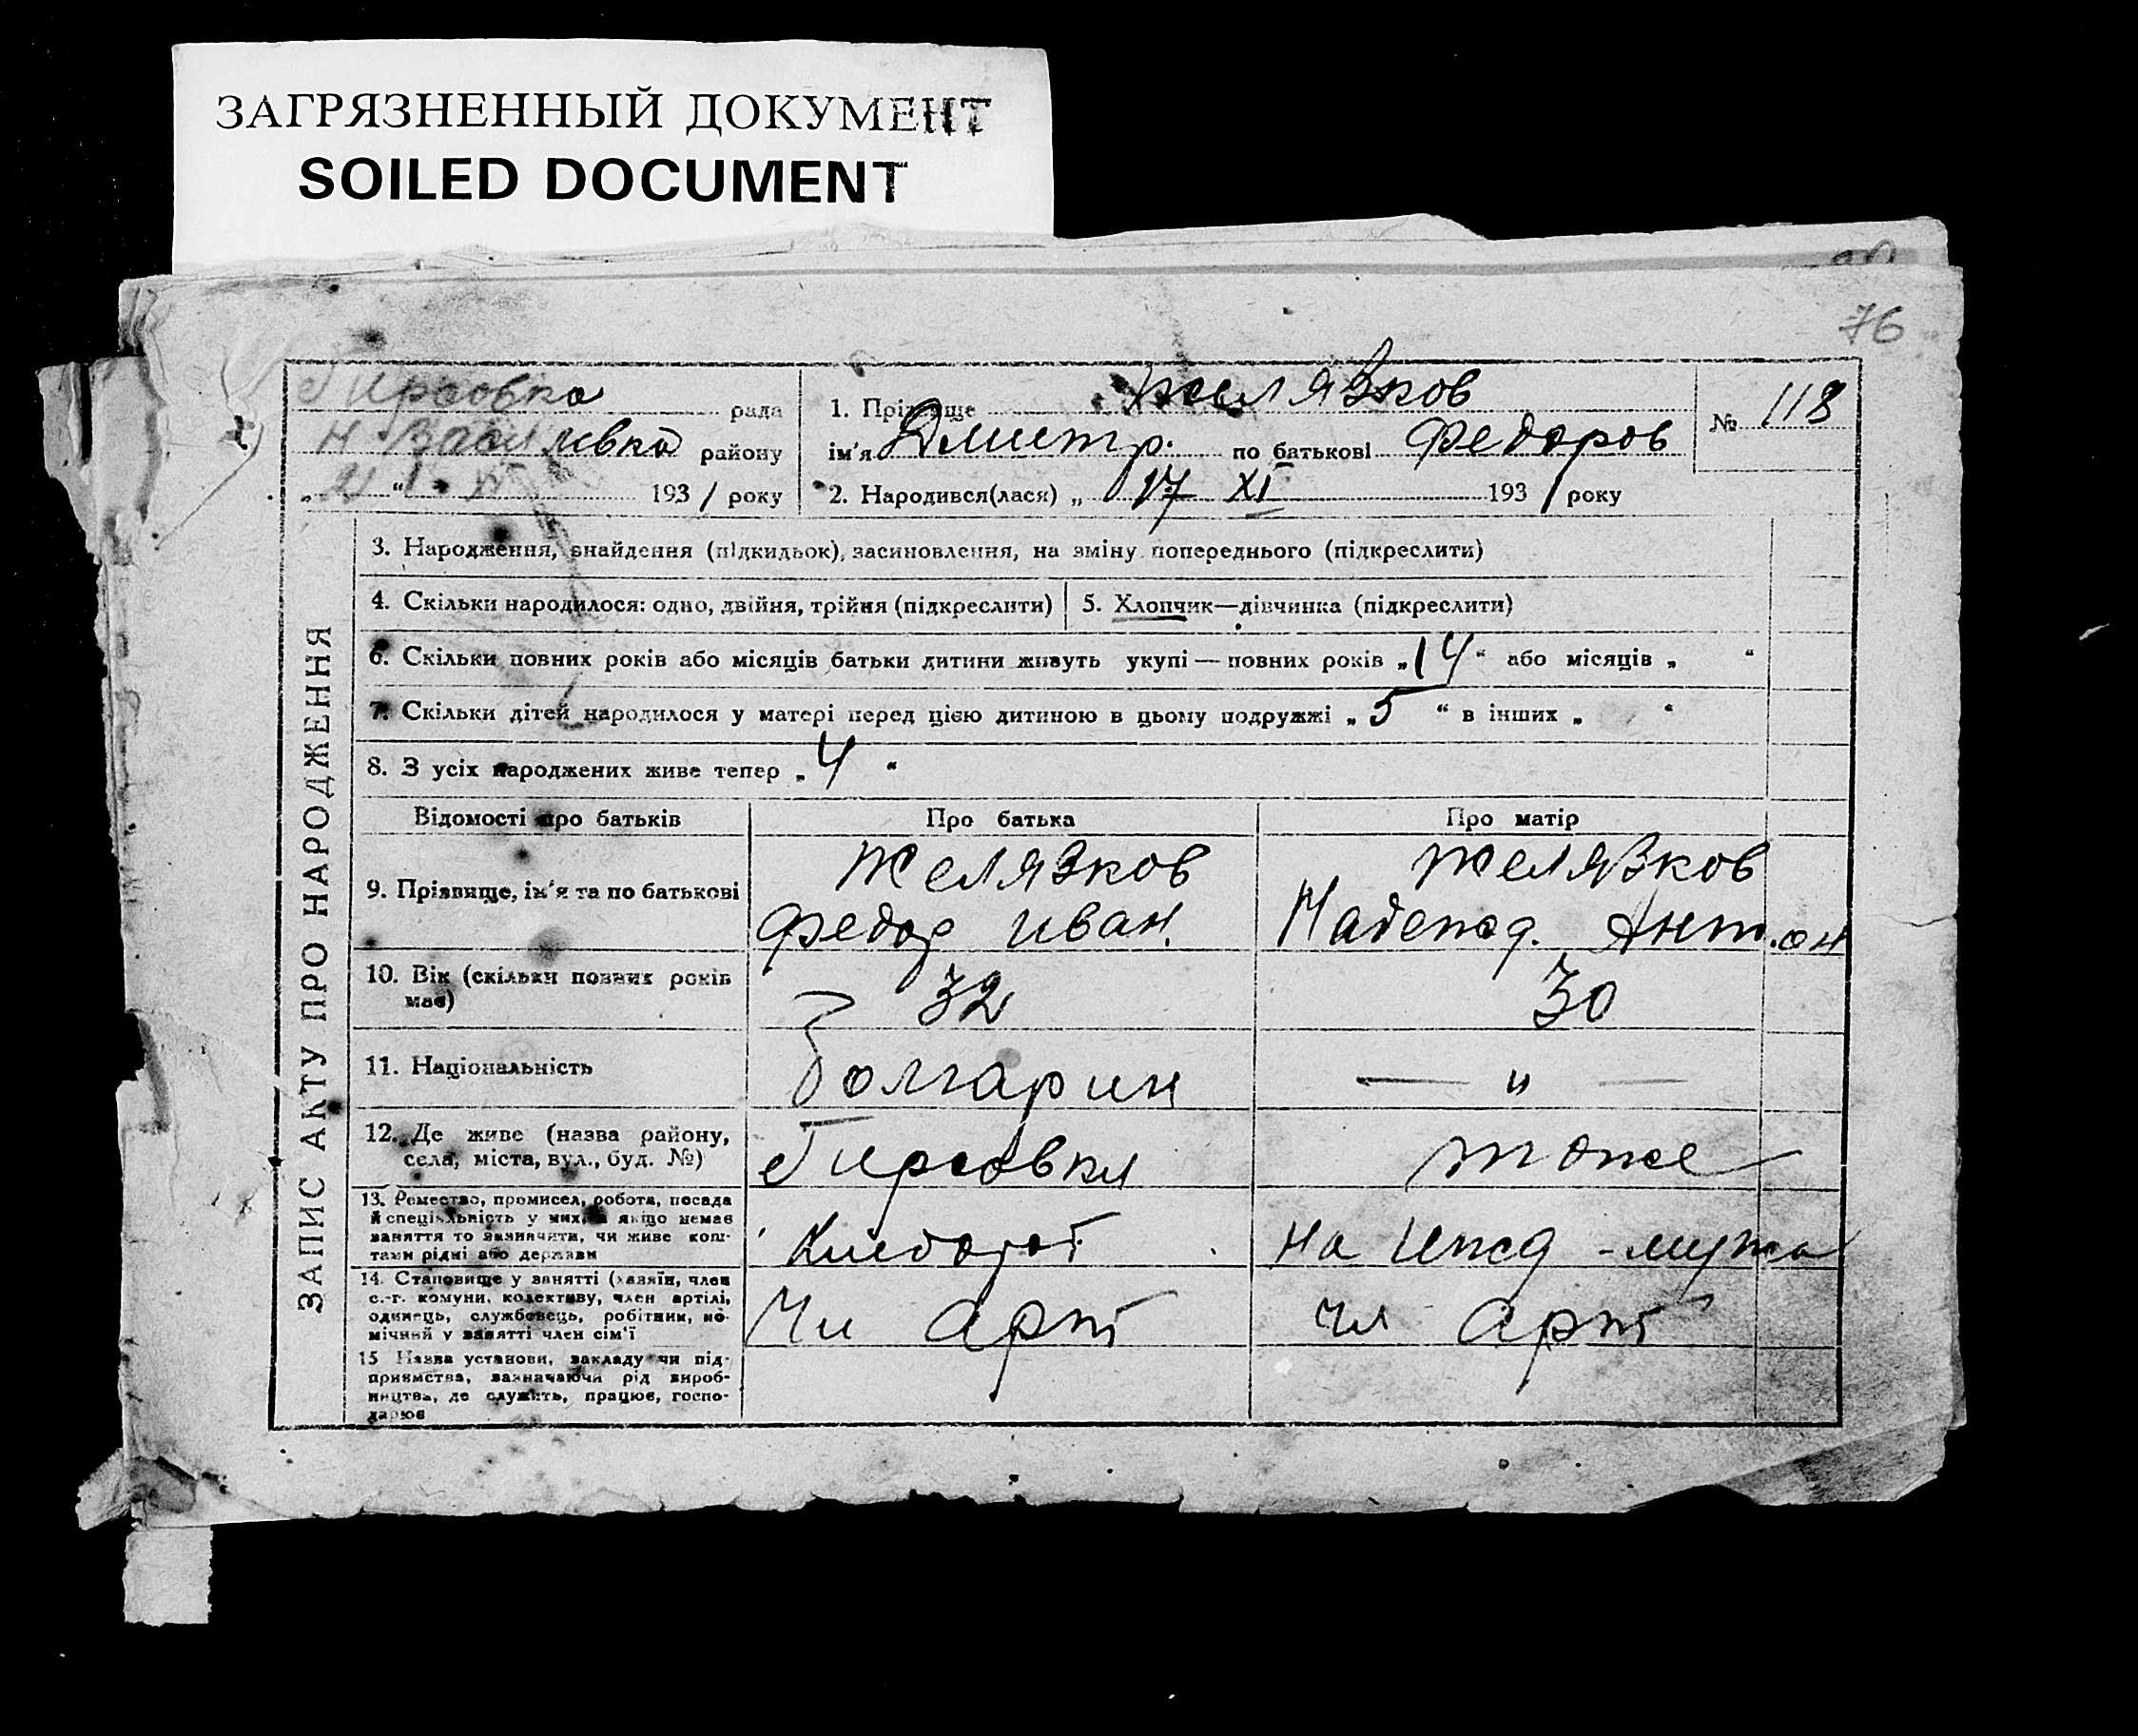 ЗАГРЯЗНЕННЫЙ ДОКУМЕНТ
SOILED DOCUMENT
76
Гирсовка рада
район у
193 1 року
1. Прізвище Желязков
ім'я Дмитр. по батькові Федоров
2. Народився(лася) „ 17 XI 193 1 року
№ 118
ЗАПИС АКТУ ПРО НАРОДЖЕННЯ
3. Народження, знайдення (підкидьок), засиновлення, на зміну попереднього (підкреслити)
4. Скільки народилося: одно, двійня, трійня (підкреслити) 5. Хлопчик—дівчинка (підкреслити)
6. Скільки повних років або місяців батьки дитини живуть укупі — повних років „14“ або місяців „ “
7. Скільки дітей народилося у матері перед цією дитиною в цьому подружжі „5“ в інших „ “
8. З усіх народжених живе тепер „4“
Відомості про батьків Про батька Про матір
9. Прізвище, ім'я та по батькові
Желязков
Федор Иван.
Желязков
Надежд. Антон
10. Вік (скільки повних років
має)
32
30
11. Національність
болгарин
— „ —
12. Де живе (назва району,
села, міста, вул., буд. №)
Гирсовка
тоже
13. Ремество, промисел, робота, посада
й спеціяльність у них, а якщо немає
заняття то зазначити, чи живе кош-
тами рідні або держави
Хлебороб
на ижд - мужа
14. Становище у занятті (хазяїн, член
с.-г. комуни, колективу, член артілі,
одинець, службовець, робітник, по-
мічний у занятті член сім'ї
Чл арт
чл арт
15 Назва установи, закладу чи під-
приємства, зазначаючи рід вироб-
ництва, де служить, працює, госпо-
дарює